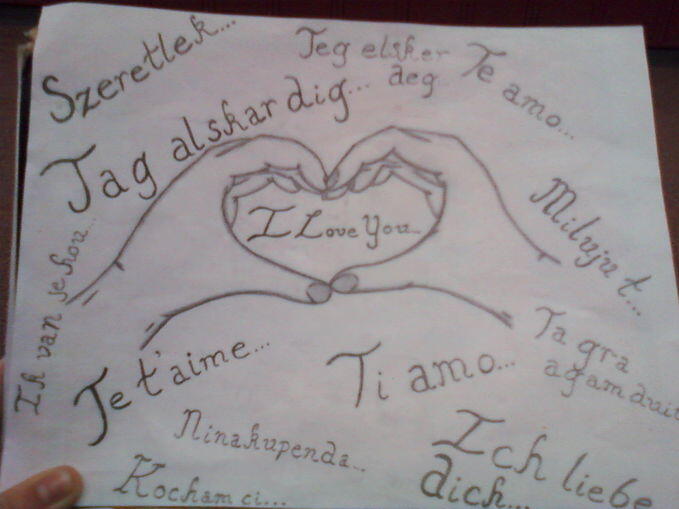 Szeretlek...
Jeg elsker
deg
Te amo...
Jag alskar dig...
I Love You...
Miluju t...
Ik van je hou...
Je t'aime...
Ti amo...
Ta gra
agam duit
Ninakupenda...
Ich liebe
dich...
Kocham ci...